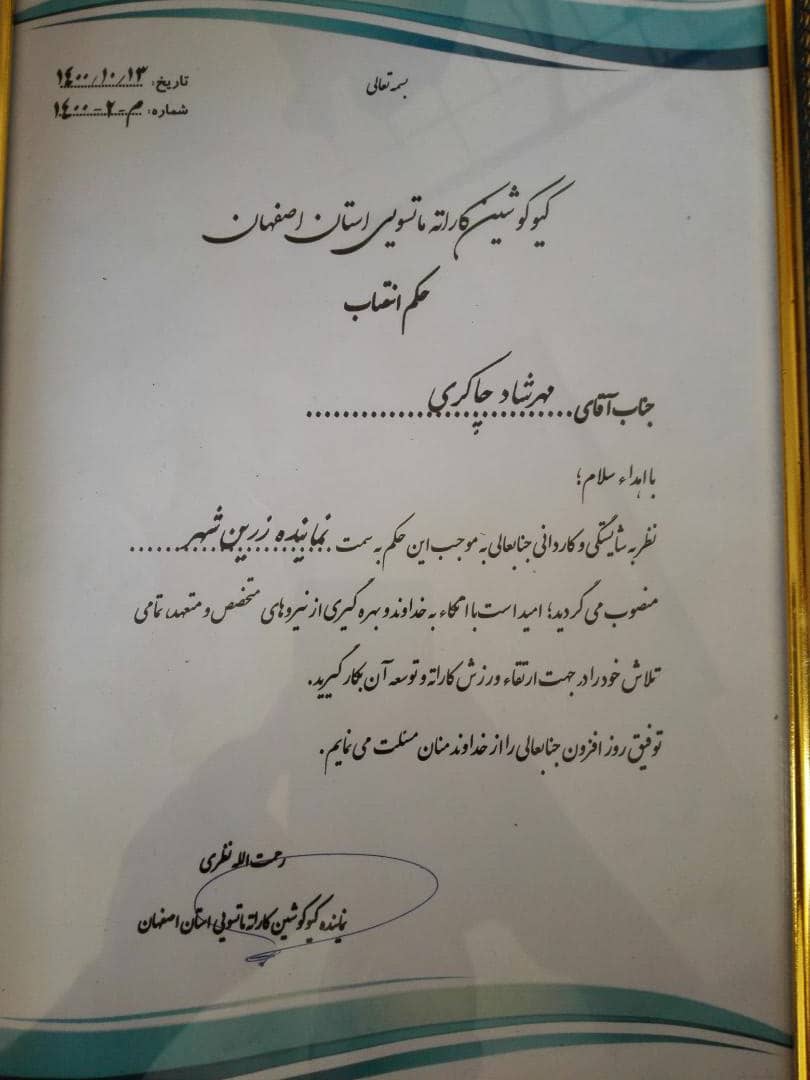 بسمه تعالی
تاریخ: ۱۴۰۰/۱۰/۱۳
شماره: ۱۴۰۰-۲-م
کیوکوشین کاراته ماتسویی استان اصفهان
حکم انتصاب
جناب آقای مهرشاد چاکری
با اهداء سلام؛
نظر به شایستگی و کاردانی جنابعالی به موجب این حکم به سمت نماینده زرین شهر
منصوب می گردید؛ امید است با اتکاء به خداوند و بهره گیری از نیروهای متخصص و متعهد، تمامی
تلاش خود را در جهت ارتقاء ورزش کاراته و توسعه آن بکار گیرید.
توفیق روز افزون جنابعالی را از خداوند منان مسئلت می نمایم.
رحمت الله نظری
نماینده کیوکوشین کاراته ماتسویی استان اصفهان